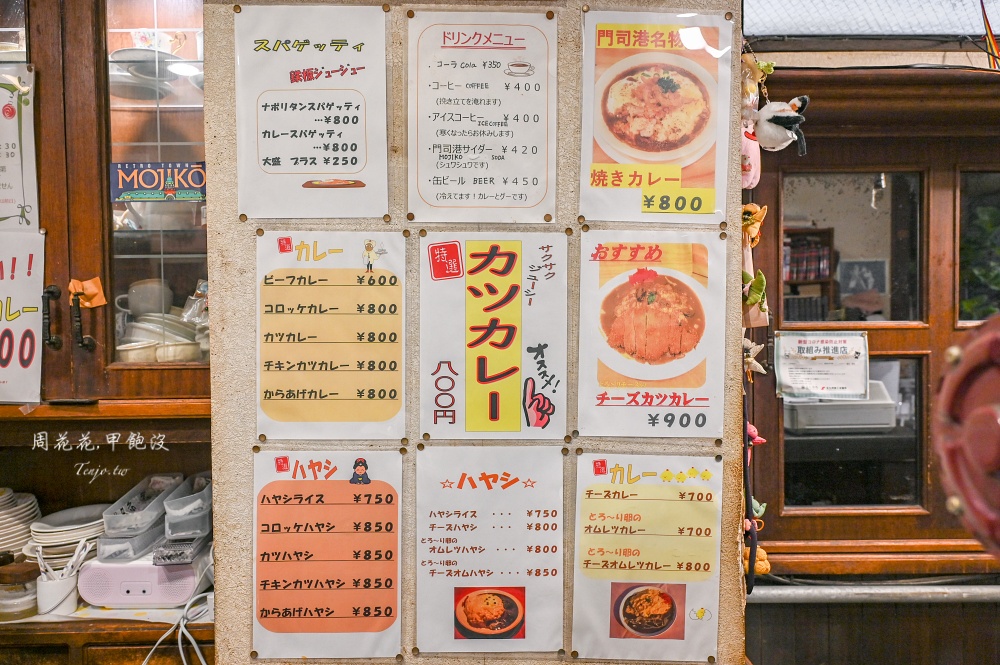 スパゲッティ
鉄板ジュージュー
ナポリタンスパゲッティ
…¥800
カレースパゲッティ
…¥800
大盛 プラス ¥250
ドリンクメニュー
・コーラ Cola ¥350
・コーヒー COFFEE ¥400
(挽き立てを淹れます)
・アイスコーヒー ¥400
ICE COFFEE
(寒くなったらお休みします)
・門司港サイダー ¥420
MOJIKO SODA
(シュワシュワです)
・缶ビール BEER ¥450
(冷えてます!カレーとグーです)
門司港名物
焼きカレー
¥800
特選 カレー
ビーフカレー ¥600
コロッケカレー ¥800
カツカレー ¥800
チキンカツカレー ¥800
からあげカレー ¥800
特選
カツカレー
サクサク
ジューシー
オススメ!
八〇〇円
おすすめ
チーズカツカレー
¥900
特選 ハヤシ
ハヤシライス ¥750
コロッケハヤシ ¥850
カツハヤシ ¥850
チキンカツハヤシ ¥850
からあげハヤシ ¥850
☆ハヤシ☆
ハヤシライス ・・・ ¥750
チーズハヤシ ・・・ ¥800
とろ～り卵の
オムレツハヤシ ・・・ ¥800
とろ～り卵の
チーズオムハヤシ ・・・ ¥850
特選 カレー
チーズカレー ¥700
とろ～り卵の
オムレツカレー ¥700
とろ～り卵の
チーズオムレツカレー ¥800
RETRO TOWN
MOJIKO
取組み推進店
周花花,甲飽沒
Tenjo.tw